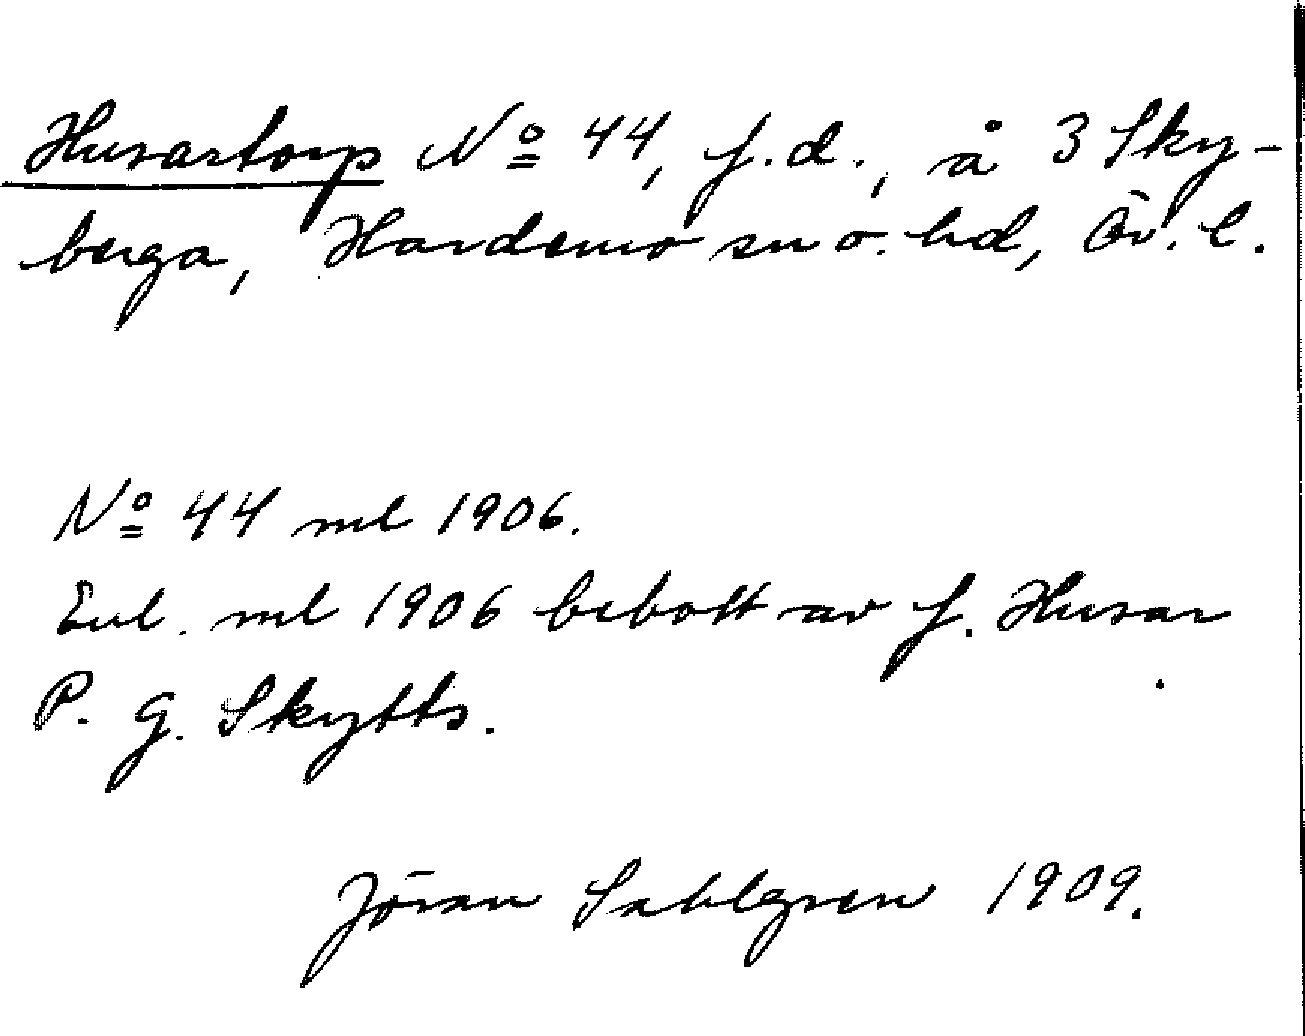 Husartorp Nº 44, f.d., å 3 Sky-
berga, Hardemo sn o. hd, Ör. l.
Nº 44 ml 1906.
Enl. ml 1906 bebott av f. Husar
P. G. Skytts.
Jöran Sahlgren 1909.